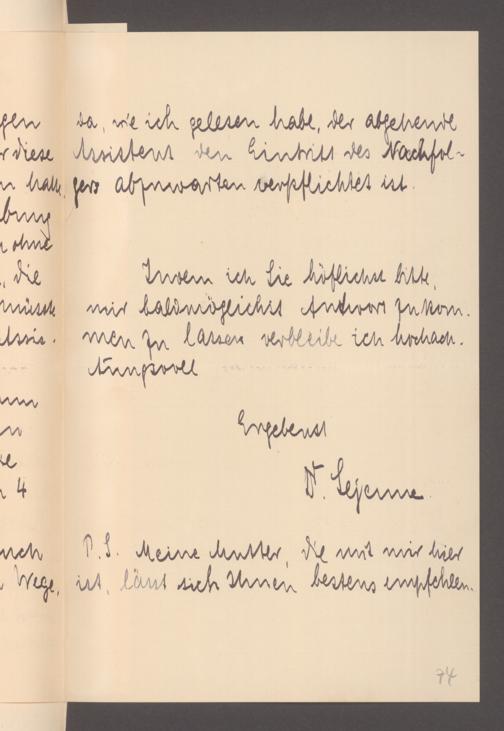 gen
r diese
n hatte,
bung
ohne
, die
müsste
Assis-
um
4
uch
Wege,
da, wie ich gelesen habe, der abgehende
Assistent den Eintritt des Nachfol-
gers abzuwarten verpflichtet ist.
Indem ich Sie höflichst bitte,
mir baldmöglichst Antwort zukom-
men zu lassen verbleibe ich hochach-
tungsvoll
Ergebenst
Dr. Lejeune
P.S. Meine Mutter, die mit mir hier
ist, lässt sich Ihnen bestens empfehlen.
74